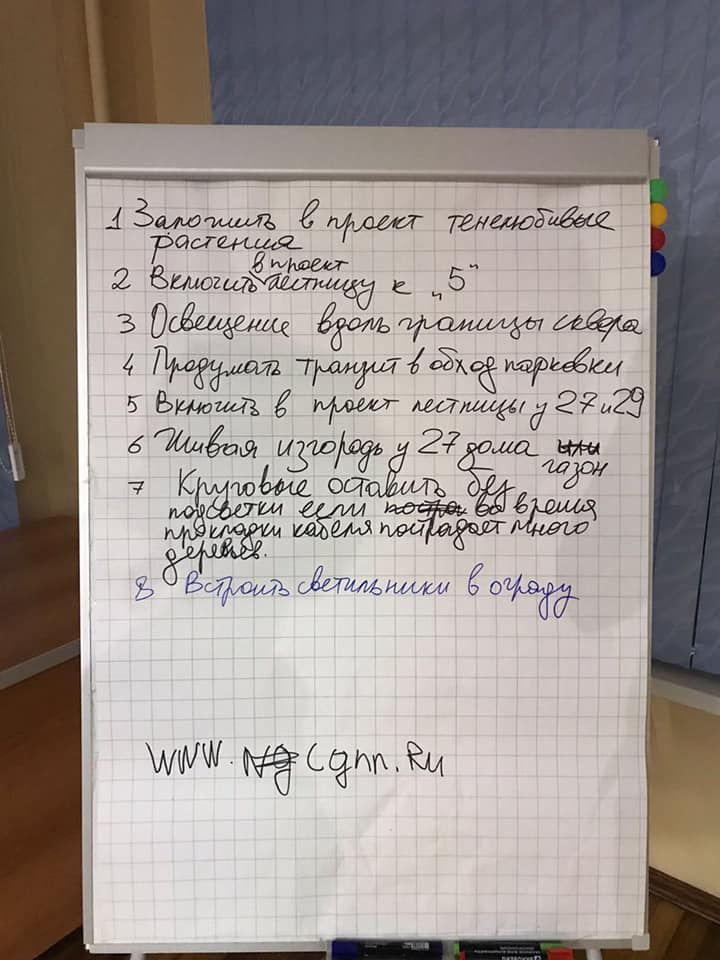 1 Заложить в проект тенелюбивые
растения
2 Включить в проект лестницу к „5"
3 Освещение вдоль границы сквера
4 Продумать транзит в обход парковки
5 Включить в проект лестницы у 27 и 29
6 Живая изгородь у 27 дома или
газон
7 Круговые оставить без
подсветки если во время
прокладки кабеля пострадает много
деревьев.
8 Встроить светильники в ограду
www.cgnn.Ru